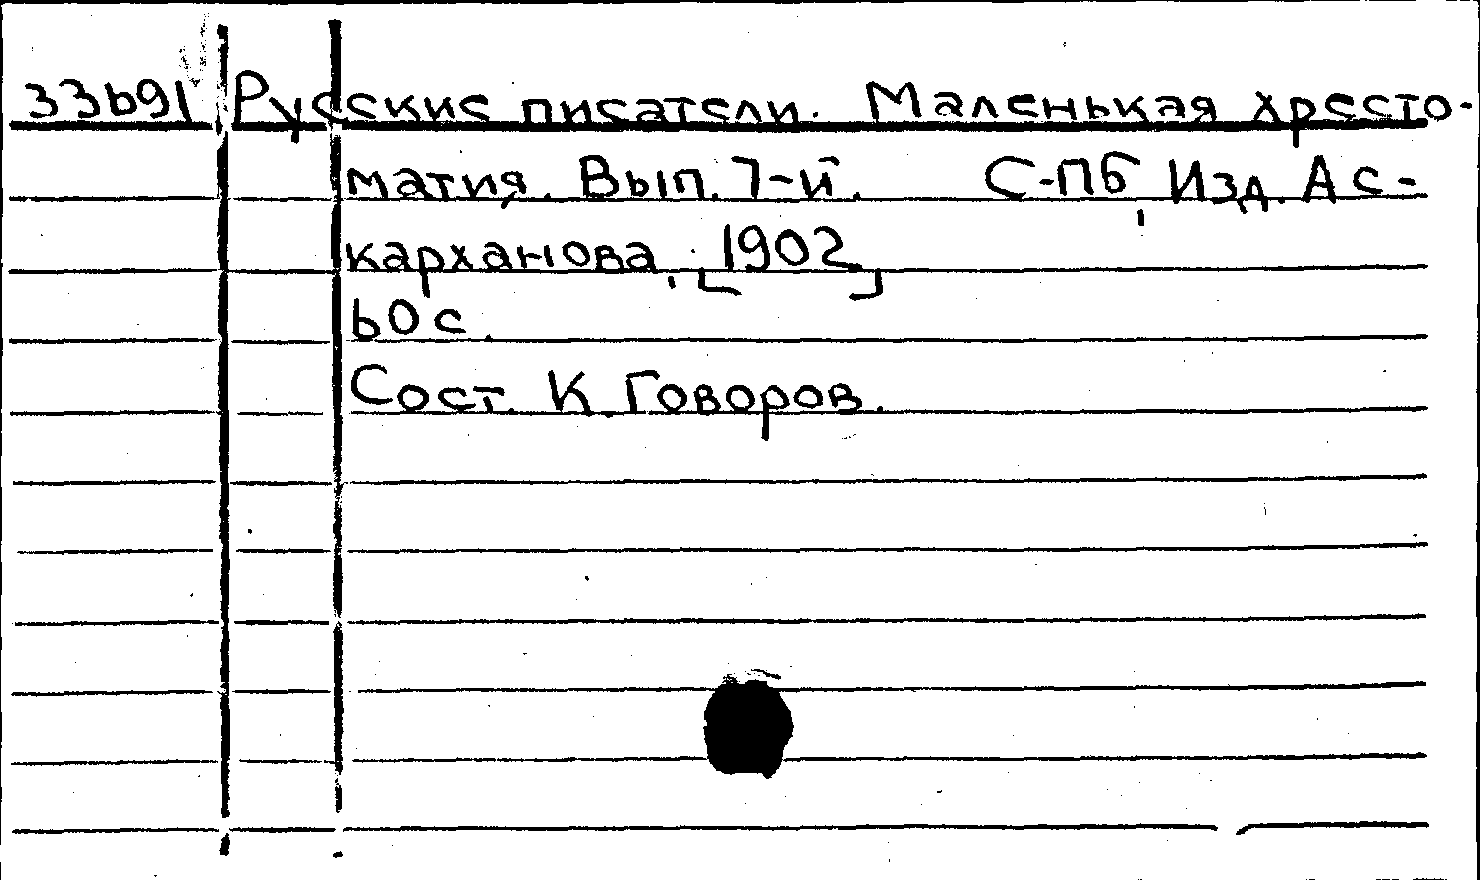 33691 Русские писатели. Маленькая хресто-
матия. Вып. 7-й. С-Пб, Изд. Ас-
карханова, [1902]
60 с.
Сост. К. Говоров.